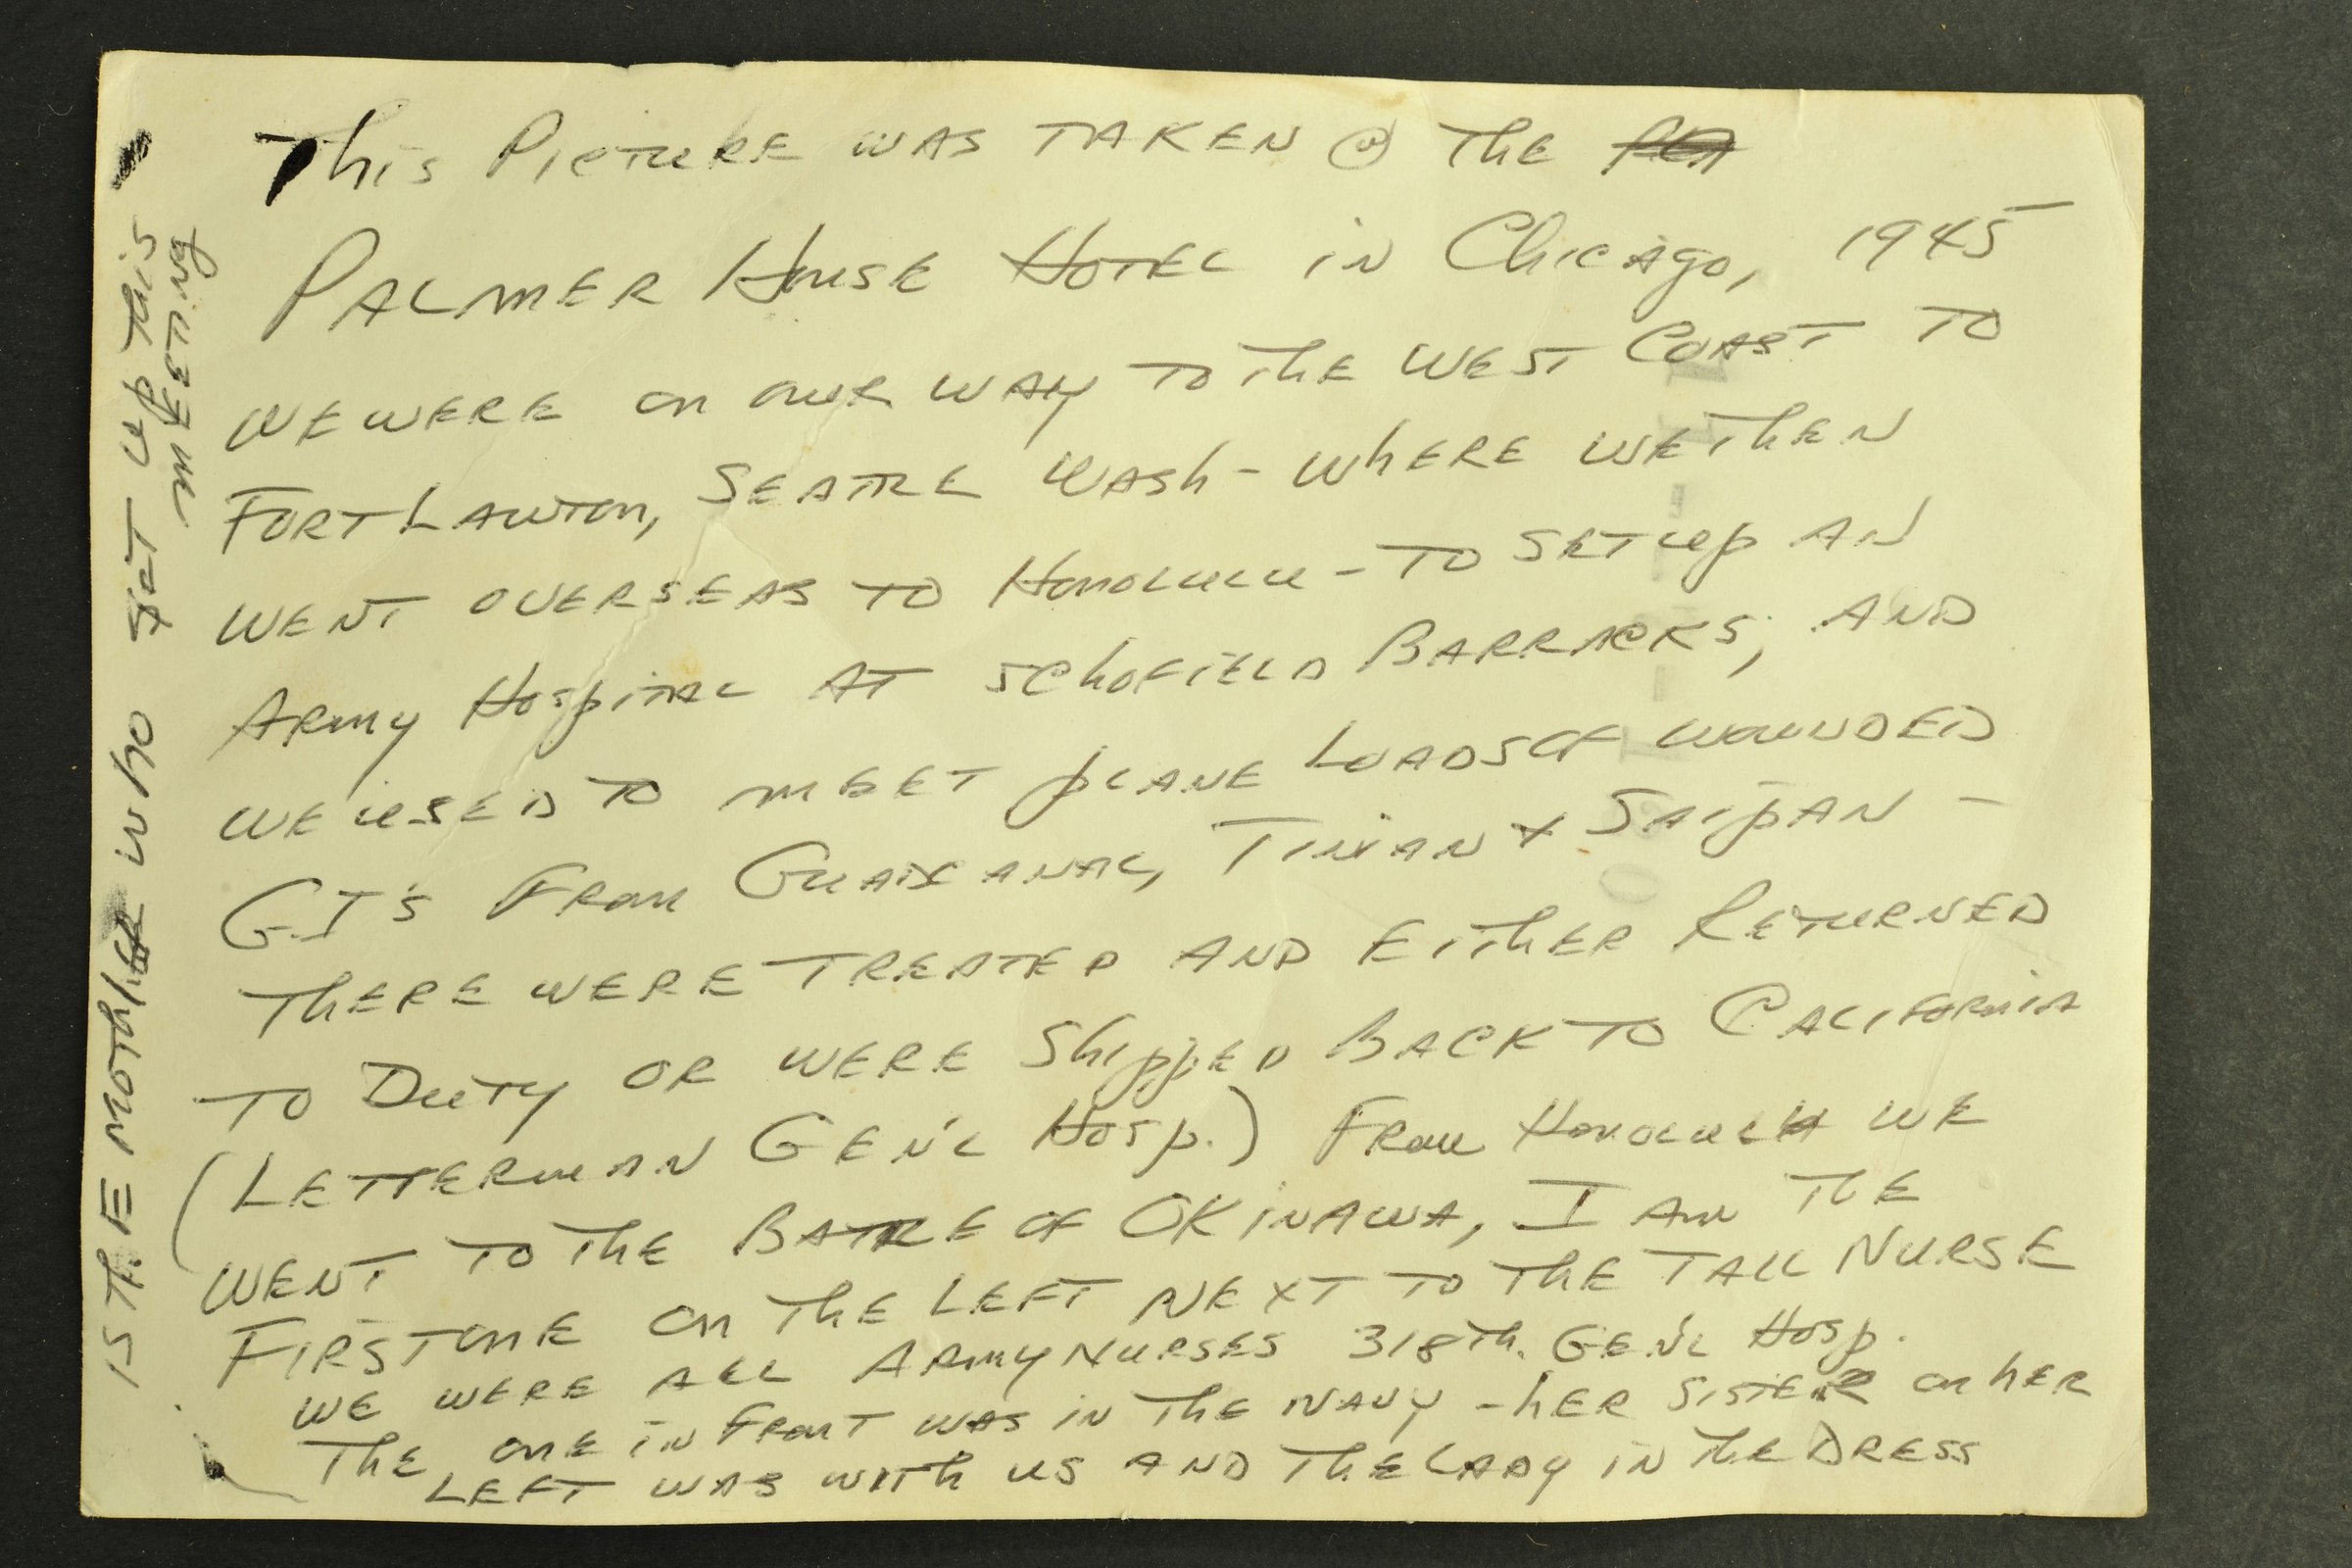 This PICTURE WAS TAKEN @ The
PALMER HOUSE HOTEL iN ChicAgo, 1945
WE WERE ON OUR WAY TO ThE WEST COAST TO
FORT LAWTON, SEATTLE WASh - WhERE WE ThEN
WENT OVERSEAS TO HONOLULU - TO SET Up AN
ARMY HospiTAL AT SChOFiELD BARRACKS, AND
WE USED TO MEET pLANE LOADS OF WOUNDED
G.I's FROM TiNiAN + SAipAN -
ThERE WERE TREATED AND EiThER RETURNED
TO DUTY OR WERE ShippED BACK TO CALIFORNiA
(LETTERMAN GEN'L Hosp.) FROM HONOLULU WE
WENT TO ThE BATTLE OF OKiNAWA, I AM ThE
FIRST ONE ON ThE LEFT NEXT TO ThE TALL NURSE
WE WERE ALL ARMY NURSES 318Th. GEN'L Hosp.
ThE ONE iN FRONT WAS iN ThE NAVY - hER SISTER ON hER
LEFT WAS WITh US AND ThE LADY iN ThE DRESS
IS ThE MOThER WhO SET Up ThiS
MEETiNg